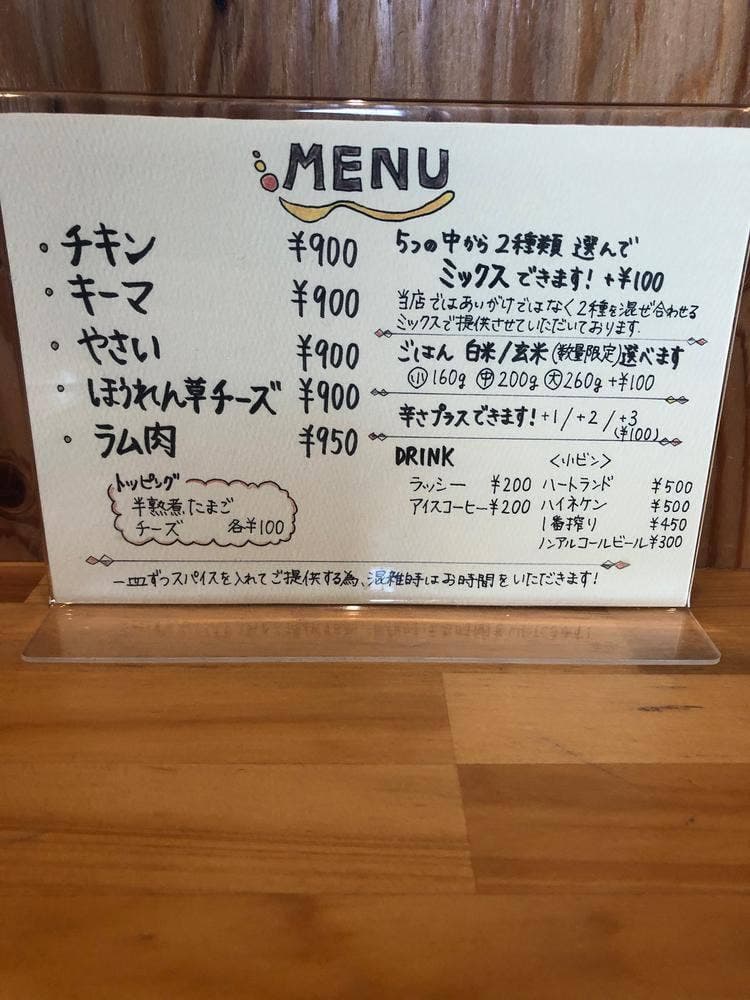 MENU
・チキン ¥900
・キーマ ¥900
・やさい ¥900
・ほうれん草チーズ ¥900
・ラム肉 ¥950
トッピング
半熟煮たまご
チーズ 各¥100
5つの中から2種類選んで
ミックスできます!+¥100
当店ではあいがけではなく2種を混ぜ合わせる
ミックスで提供させていただいております.
ごはん 白米/玄米(数量限定)選べます
小160g 中200g 大260g+¥100
辛さプラスできます!+1/+2/+3
(¥100)
DRINK
ラッシー ¥200
アイスコーヒー¥200
〈小ビン〉
ハートランド ¥500
ハイネケン ¥500
1番搾り ¥450
ノンアルコールビール¥300
一皿ずつスパイスを入れてご提供する為、混雑時はお時間をいただきます!